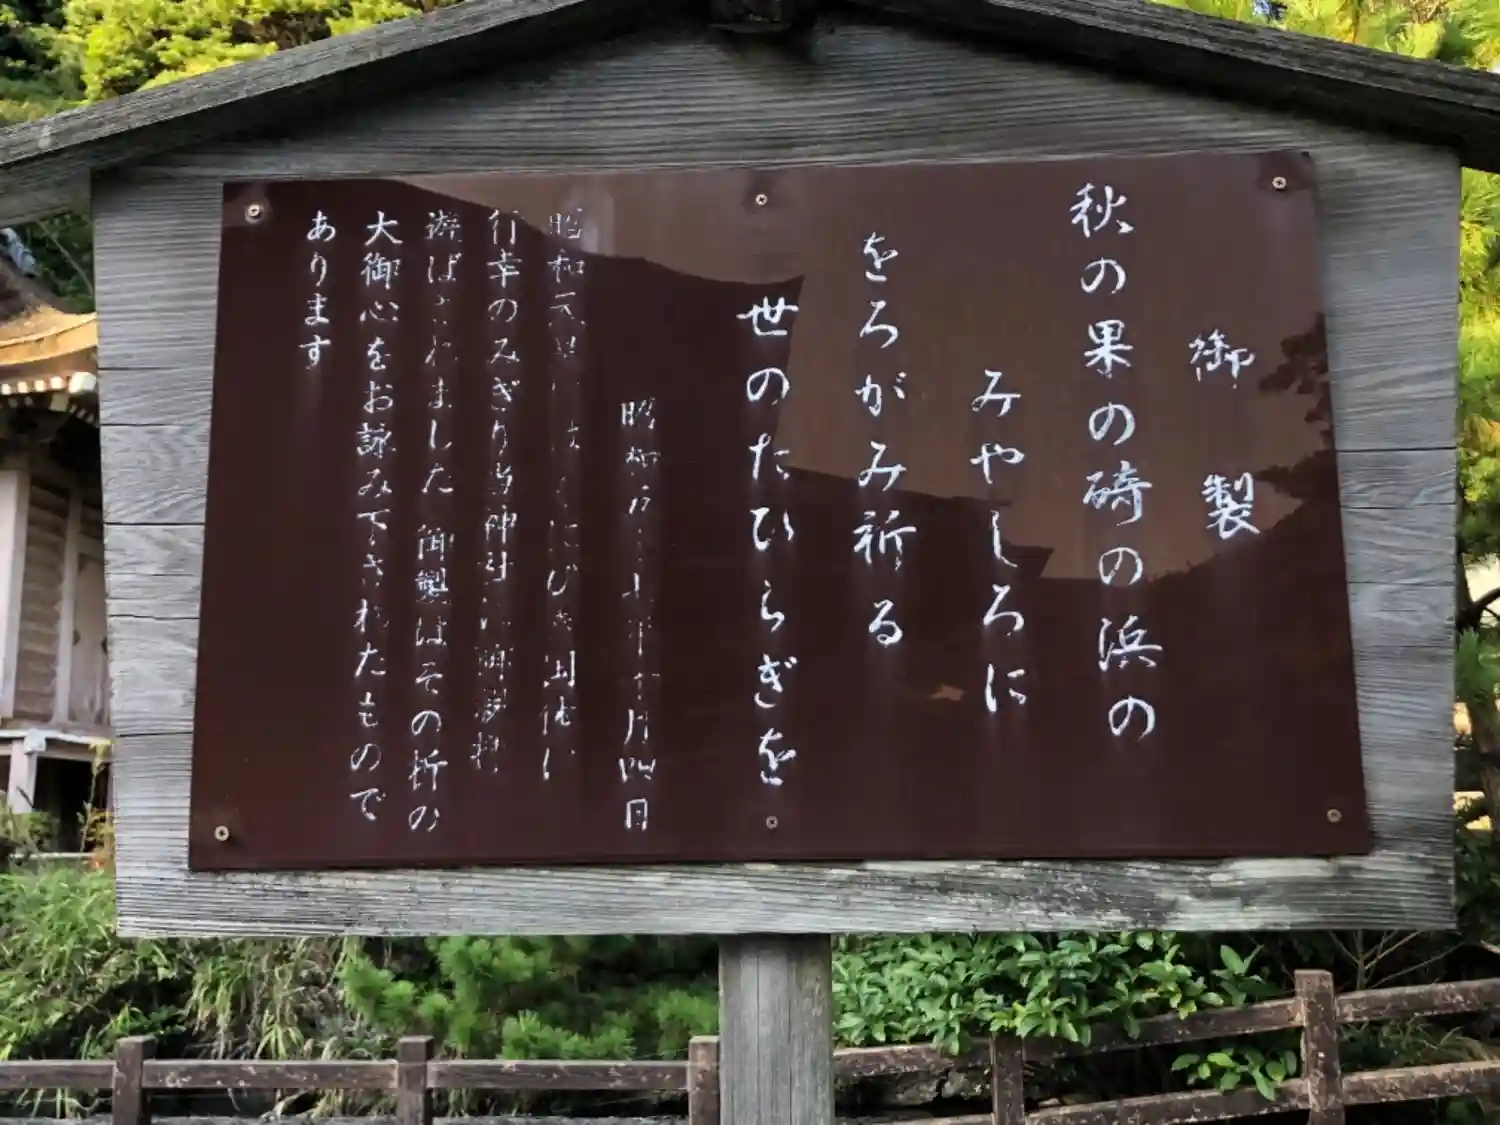 御製
秋の果の碕の浜の
みやしろに
をろがみ祈る
世のたひらぎを
昭和 年十月四日
昭和天皇にはくにびき国体に
行幸のみぎり当神社に御参拝
遊ばされました 御製はその折の
大御心をお詠み下されたもので
あります